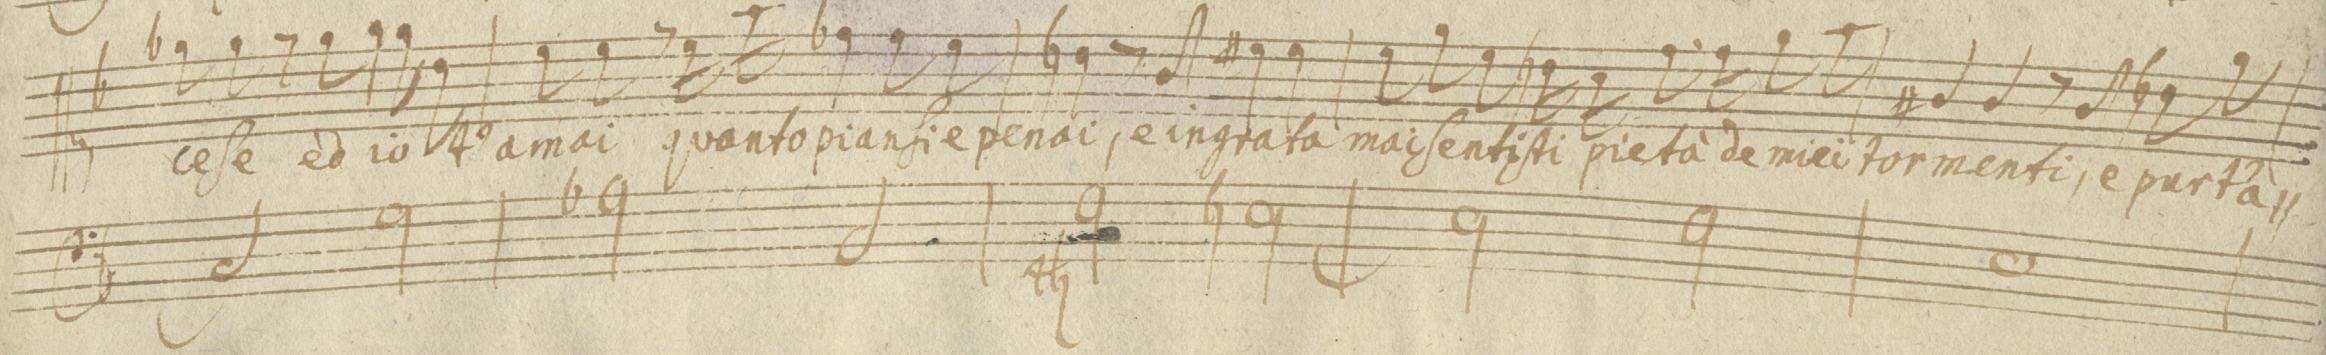 cese ed io t'amai quanto piansi e penai, e ingrata mai sentisti pietà de miei tormenti, e pur t'à
4